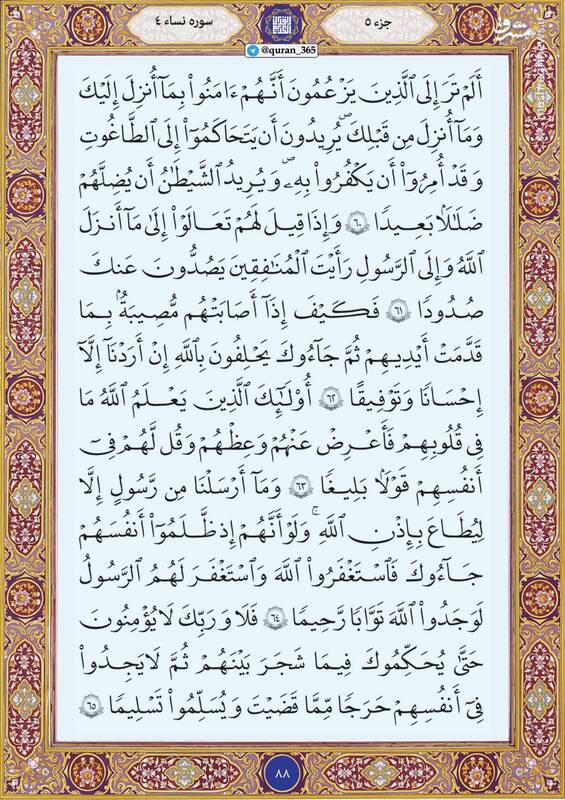 جزء ٥
سوره نساء ٤
@quran_365
أَلَمْ تَرَ إِلَى ٱلَّذِينَ يَزْعُمُونَ أَنَّهُمْ ءَامَنُوا۟ بِمَآ أُنزِلَ إِلَيْكَ
وَمَآ أُنزِلَ مِن قَبْلِكَ يُرِيدُونَ أَن يَتَحَاكَمُوٓا۟ إِلَى ٱلطَّٰغُوتِ
وَقَدْ أُمِرُوٓا۟ أَن يَكْفُرُوا۟ بِهِۦۖ وَيُرِيدُ ٱلشَّيْطَٰنُ أَن يُضِلَّهُمْ
ضَلَٰلًۢا بَعِيدًا ٦٠ وَإِذَا قِيلَ لَهُمْ تَعَالَوْا۟ إِلَىٰ مَآ أَنزَلَ
ٱللَّهُ وَإِلَى ٱلرَّسُولِ رَأَيْتَ ٱلْمُنَٰفِقِينَ يَصُدُّونَ عَنكَ
صُدُودًا ٦١ فَكَيْفَ إِذَآ أَصَٰبَتْهُم مُّصِيبَةٌۢ بِمَا
قَدَّمَتْ أَيْدِيهِمْ ثُمَّ جَآءُوكَ يَحْلِفُونَ بِٱللَّهِ إِنْ أَرَدْنَآ إِلَّآ
إِحْسَٰنًا وَتَوْفِيقًا ٦٢ أُو۟لَٰٓئِكَ ٱلَّذِينَ يَعْلَمُ ٱللَّهُ مَا
فِى قُلُوبِهِمْ فَأَعْرِضْ عَنْهُمْ وَعِظْهُمْ وَقُل لَّهُمْ فِىٓ
أَنفُسِهِمْ قَوْلًۢا بَلِيغًا ٦٣ وَمَآ أَرْسَلْنَا مِن رَّسُولٍ إِلَّا
لِيُطَاعَ بِإِذْنِ ٱللَّهِۚ وَلَوْ أَنَّهُمْ إِذ ظَّلَمُوٓا۟ أَنفُسَهُمْ
جَآءُوكَ فَٱسْتَغْفَرُوا۟ ٱللَّهَ وَٱسْتَغْفَرَ لَهُمُ ٱلرَّسُولُ
لَوَجَدُوا۟ ٱللَّهَ تَوَّابًا رَّحِيمًا ٦٤ فَلَا وَرَبِّكَ لَا يُؤْمِنُونَ
حَتَّىٰ يُحَكِّمُوكَ فِيمَا شَجَرَ بَيْنَهُمْ ثُمَّ لَا يَجِدُوا۟
فِىٓ أَنفُسِهِمْ حَرَجًا مِّمَّا قَضَيْتَ وَيُسَلِّمُوا۟ تَسْلِيمًا ٦٥
٨٨